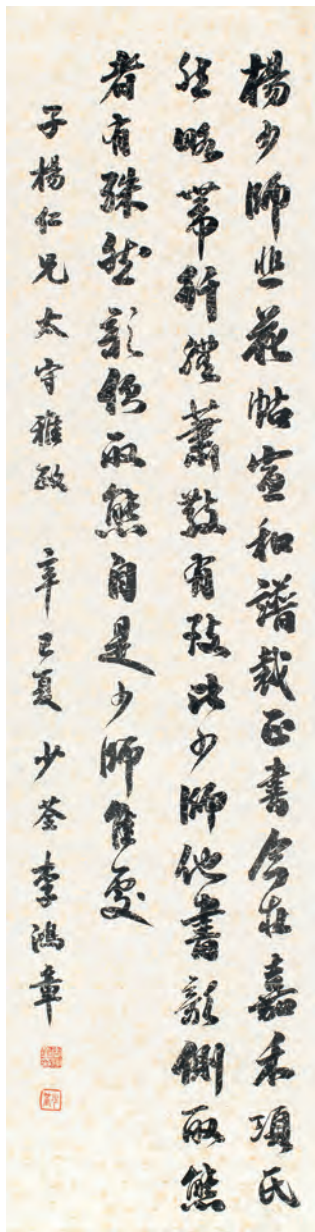 楊少師韭花帖宣和譜載正書今在嘉禾項氏
然略帶行體蕭散有致比少師他書欹側取態
者有殊然欹側取態自是少師佳處
子楊仁兄太守雅政 辛巳夏 少荃李鴻章